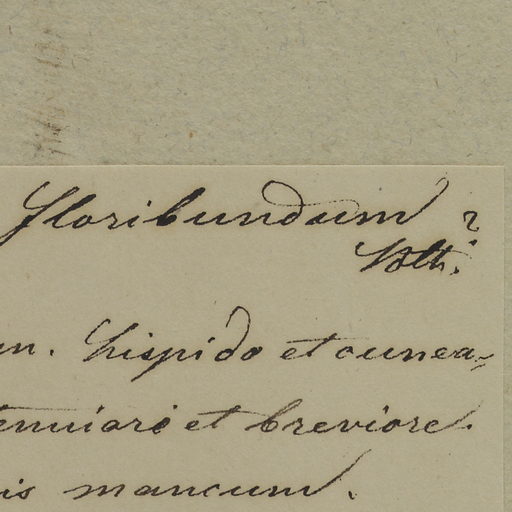 floribundum ?
Wth.
n. hispido et cunea-
tenuiori et breviore.
is mancum.